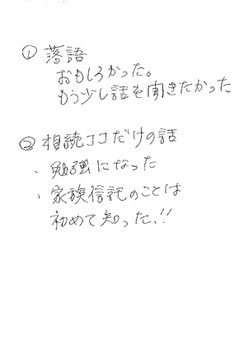 ① 落語
おもしろかった。
もう少し話を聞きたかった
② 相続ココだけの話
・勉強になった
・家族信託のことは
初めて知った.!!